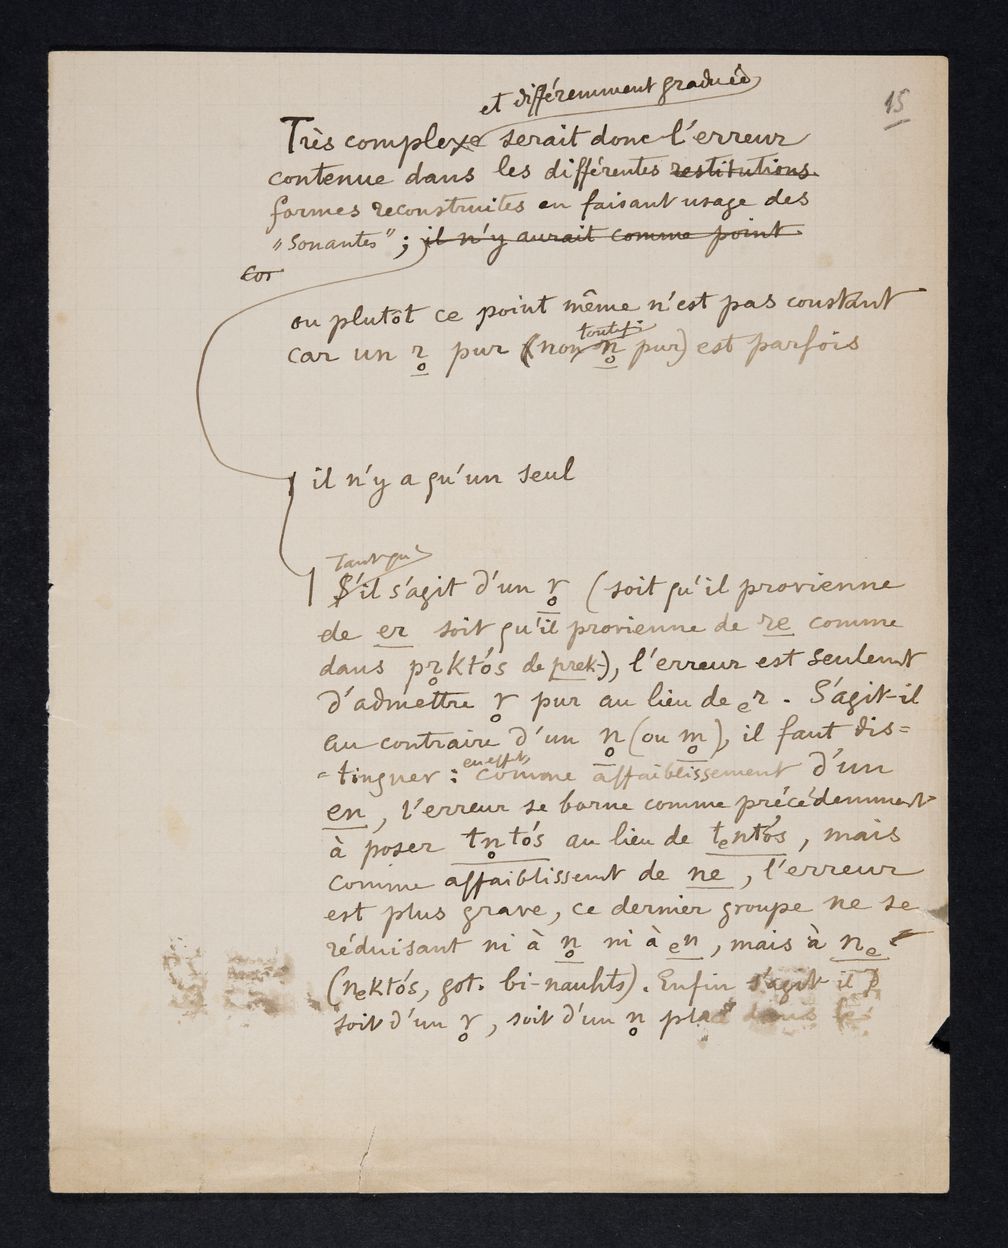 15
et différemment graduée
Très complexe serait donc l'erreur
contenue dans les différentes restitutions
formes reconstruites en faisant usage des
"sonantes" ; il n'y aurait comme point
cor
ou plutôt ce point même n'est pas constant
toutef.
car un r̥ pur (non n̥ pur) est parfois
il n'y a qu'un seul
Tant qu'
S'il s'agit d'un r̥ (soit qu'il provienne
de er soit qu'il provienne de re comme
dans pr̥któs de prek-), l'erreur est seulemt
d'admettre r̥ pur au lieu de ₑr. S'agit-il
au contraire d'un n̥ (ou m̥), il faut dis=
=tinguer : en effet, comme affaiblissement d'un
en, l'erreur se borne comme précédemment
à poser tn̥tós au lieu de tₑntós, mais
comme affaiblissemt de ne, l'erreur
est plus grave, ce dernier groupe ne se
réduisant ni à n̥ ni à ₑn, mais à nₑ
(nₑktós, got. bi-nauhts). Enfin s'agit-il
soit d'un r̥, soit d'un n̥ placé dans